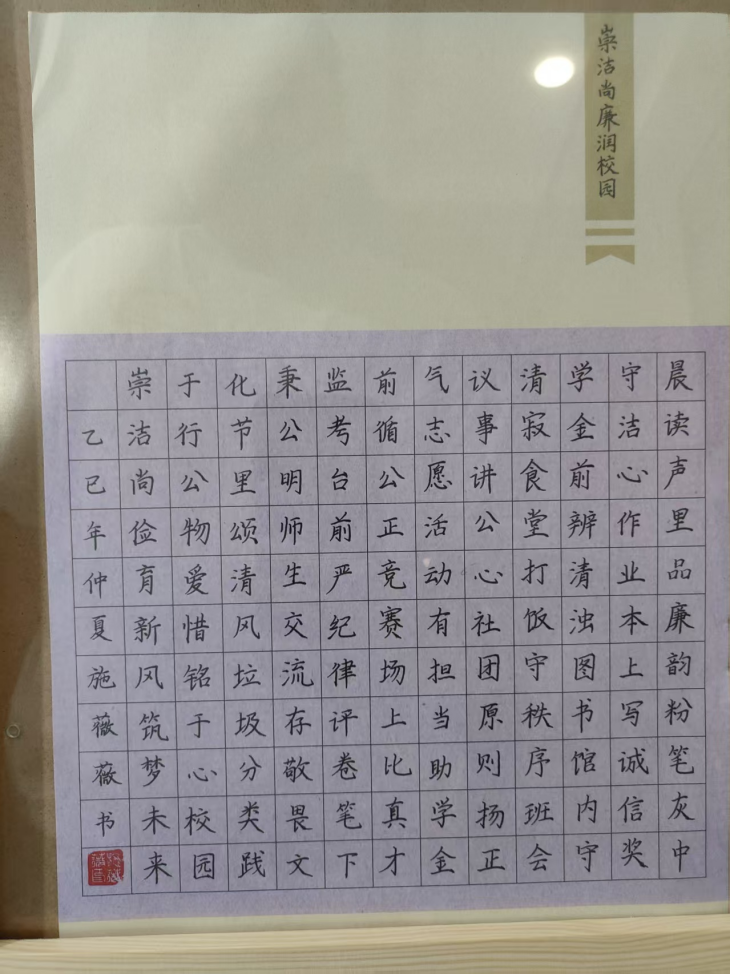 崇洁尚廉润校园
晨读声里品廉韵粉笔灰中
守洁心作业本上写诚信奖
学金前辨清浊图书馆内守
清寂食堂打饭守秩序班会
议事讲公心社团原则扬正
气志愿活动有担当助学金
前循公正竞赛场上比真才
监考台前严纪律评卷笔下
秉公明师生交流存敬畏文
化节里颂清风垃圾分类践
于行公物爱惜铭于心校园
崇洁尚俭育新风筑梦未来
乙巳年仲夏施薇薇书